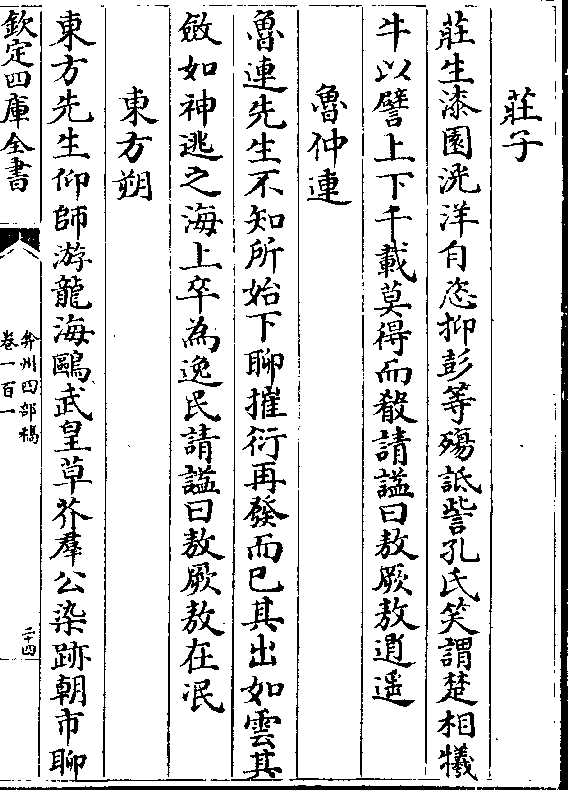 莊子
莊生漆園洸洋自恣抑彭等殤詆訾孔氏笑謂楚相犧
牛以譬上下千載莫得而殽請謚曰敖厥敖逍遥
魯仲連
魯連先生不知所始下聊摧衍再發而已其出如雲其
斂如神逃之海上卒為逸民請謚曰敖厥敖在泯
東方朔
東方先生仰師游龍海鷗武皇草芥羣公染跡朝市聊
欽定四庫全書
弇州四部稿
卷一百一
二十四